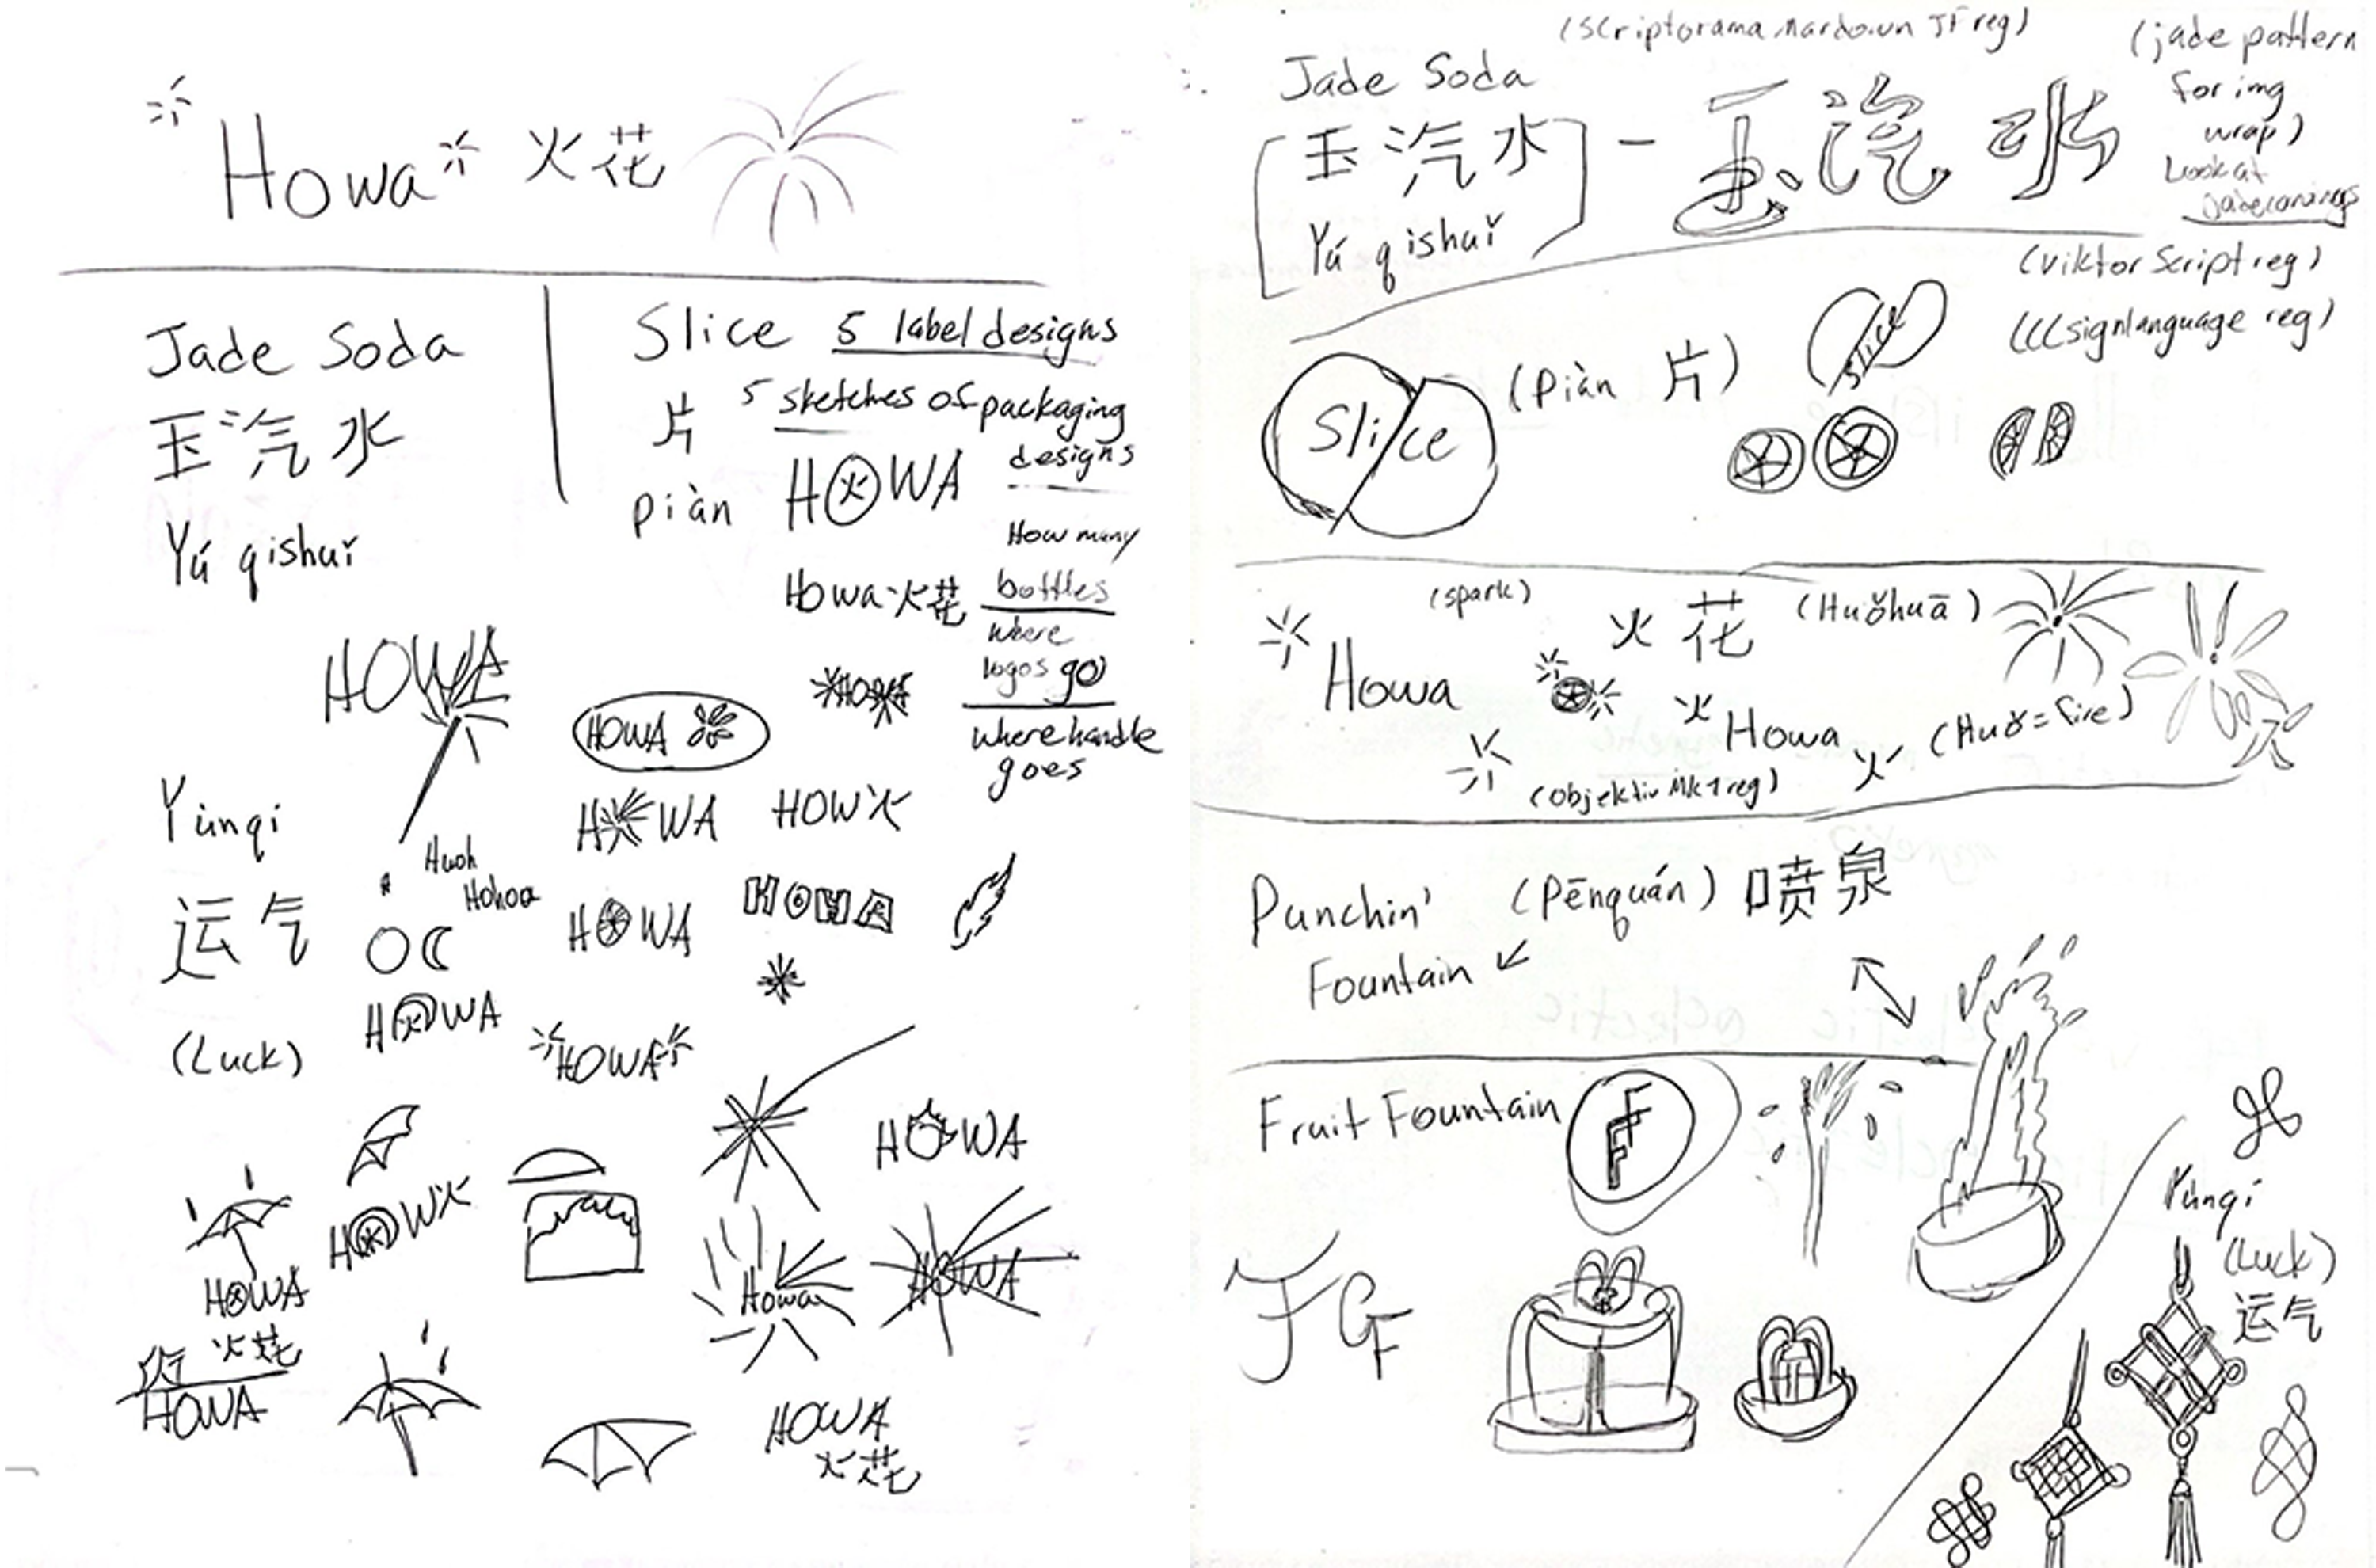 Howa 火花
Jade Soda
玉汽水
Yú qishuǐ
Slice 5 label designs
片 5 sketches of packaging
designs
piàn
H火WA
How many
bottles
where
logos go
where handle
goes
Howa 火花
HOWA
HOWA
HOWA
Yùnqi
运气
(Luck)
Huoh
Hohoa
H WA
HOW火
H WA
HOWA
H火WA
HOWA
HOWA
H火W火
HOWA
火花
HOWA
Howa
HOWA
HOWA
火花
(Scriptorama Mardown JF reg)
Jade Soda
玉汽水 - 玉汽水
Yú qishuǐ
(jade pattern
for img
wrap)
Look at
jade carvings
(Viktor Script reg)
(CCSignlanguage reg)
Slice
(Piàn 片)
Slice
(spark)
Howa
火花 (Huǒhuā)
火 Howa
火 (Huǒ=fire)
(Objektiv Mk1 reg)
Punchin'
Fountain
(Pēnquán) 喷泉
Fruit Fountain
FF
F
GF
Yùnqi
(Luck)
运气